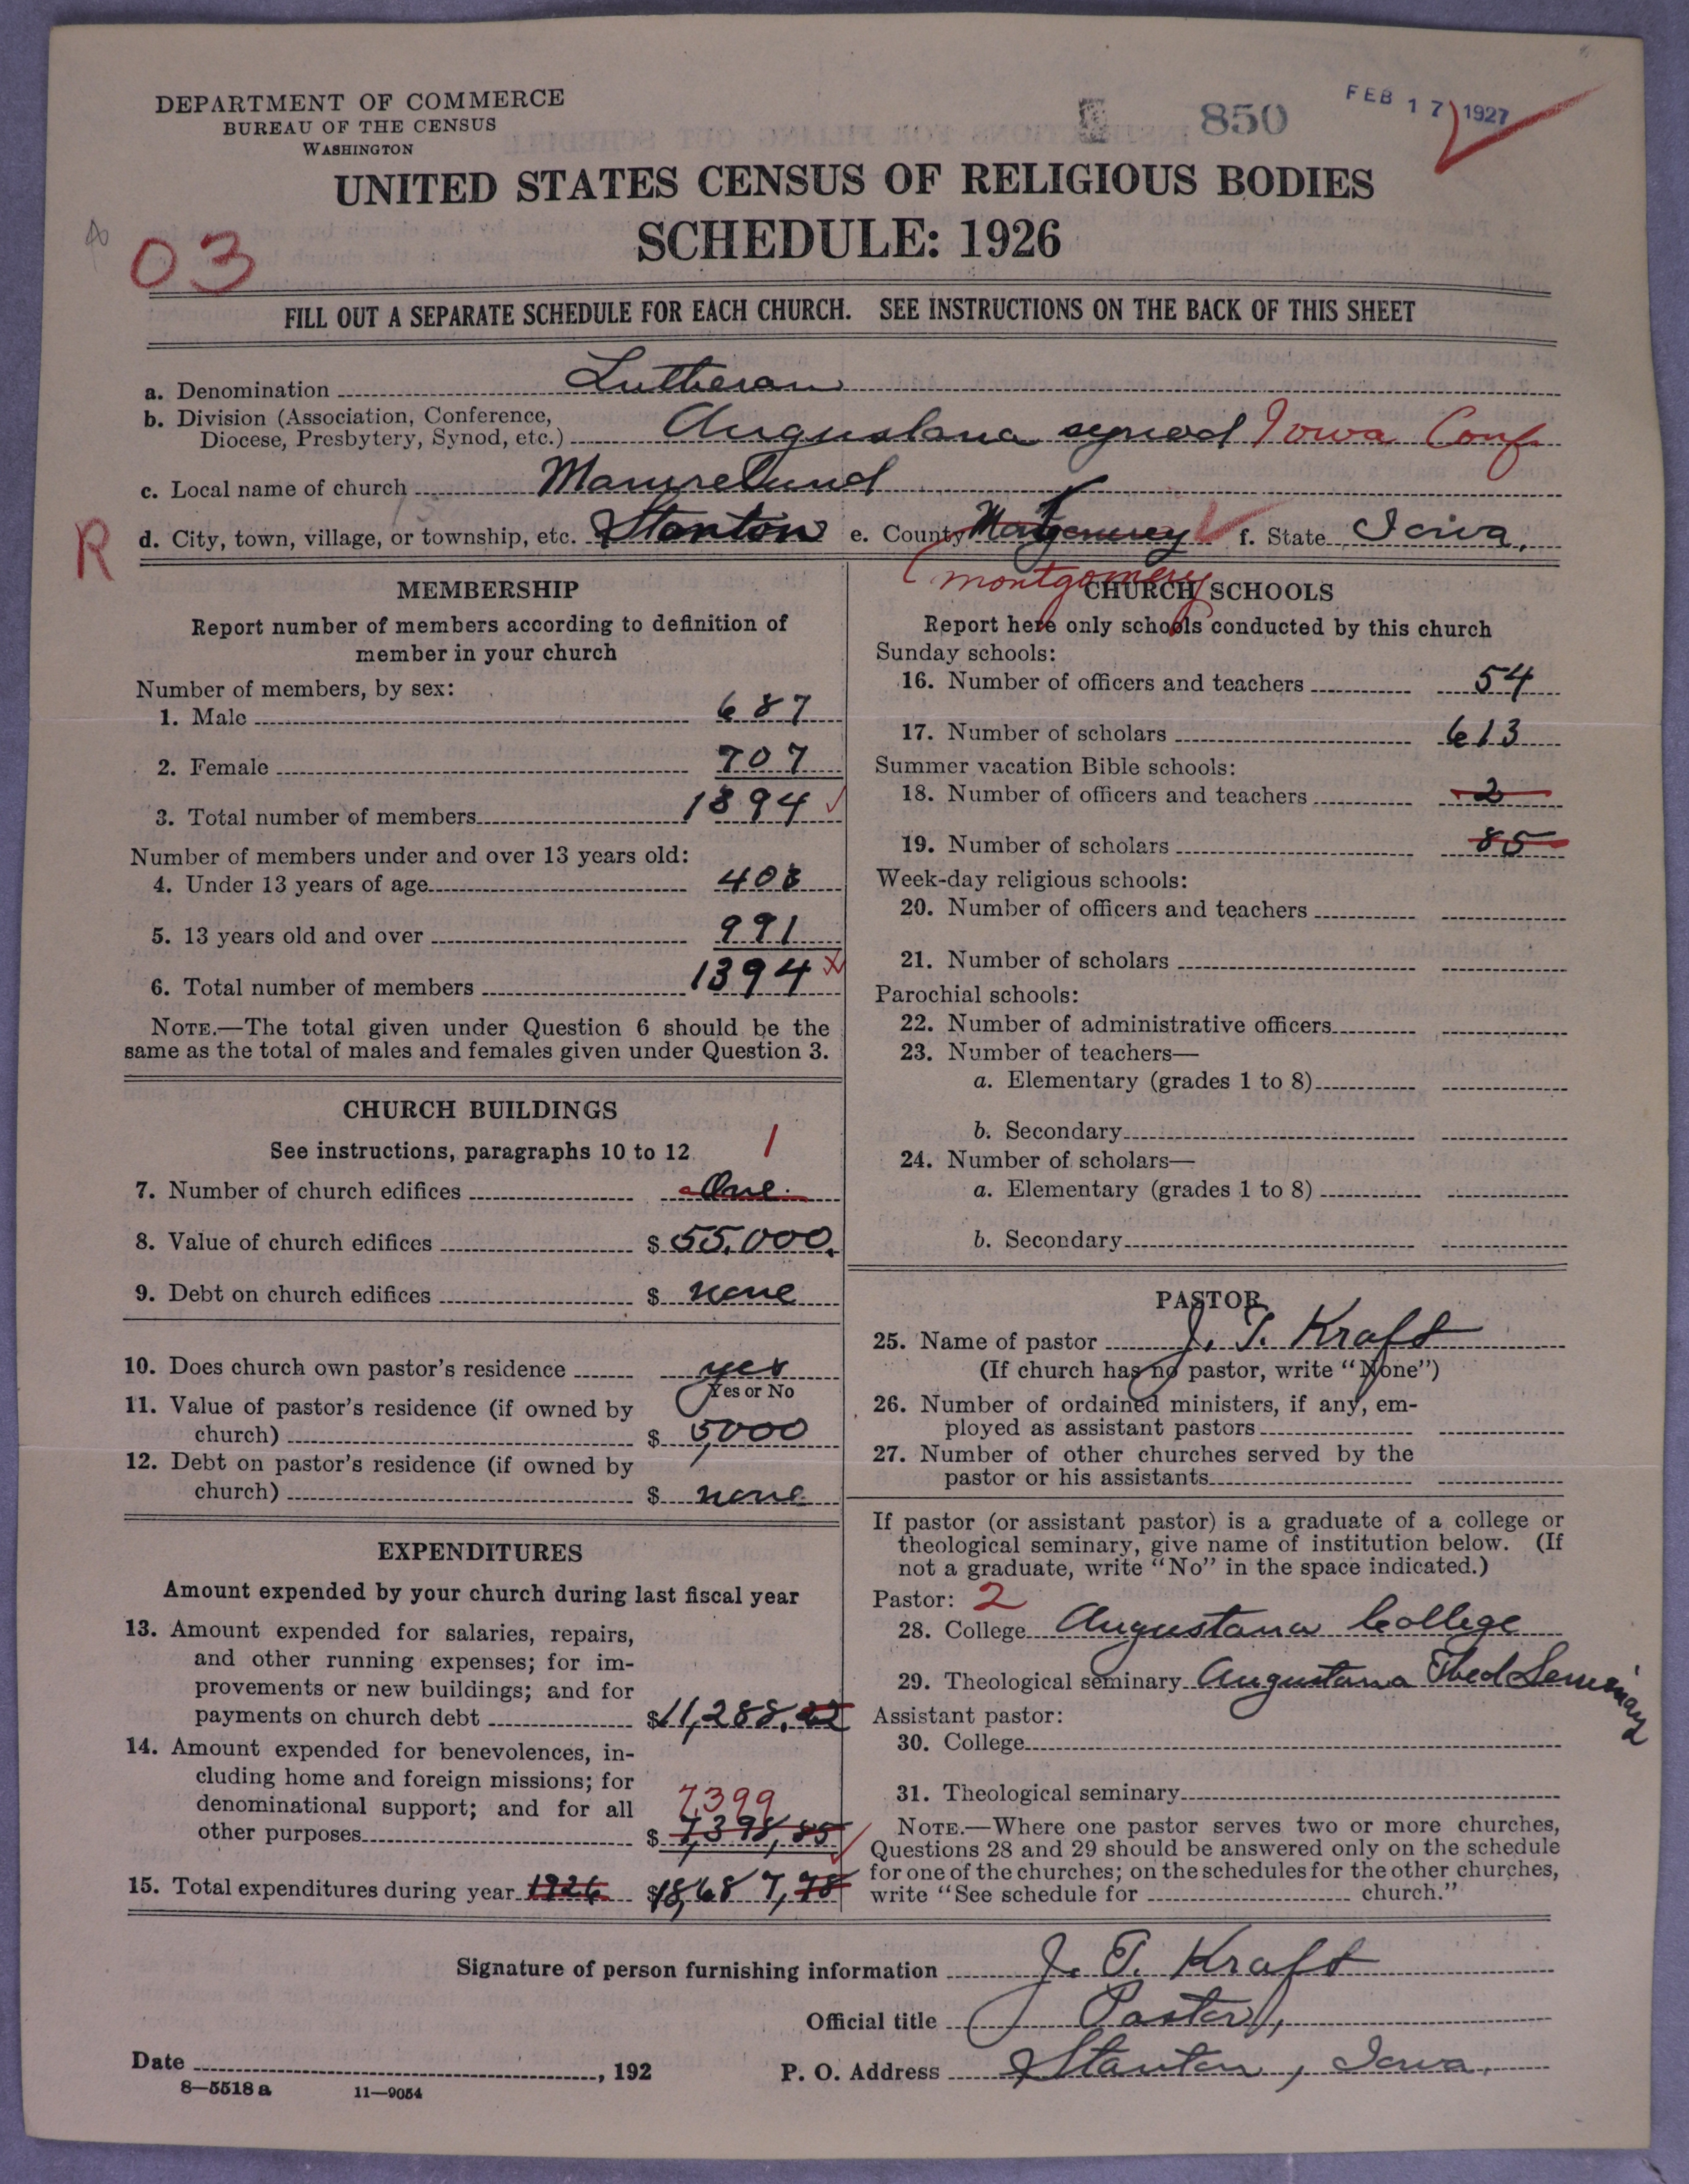 DEPARTMENT OF COMMERCE
BUREAU OF THE CENSUS
WASHINGTON
850
FEB 17 1927
UNITED STATES CENSUS OF RELIGIOUS BODIES
SCHEDULE: 1926
03
FILL OUT A SEPARATE SCHEDULE FOR EACH CHURCH. SEE INSTRUCTIONS ON THE BACK OF THIS SHEET
a. Denomination Lutheran
b. Division (Association, Conference,
Diocese, Presbytery, Synod, etc.) Augustana synod Iowa Conf
c. Local name of church Mamrelund
R
d. City, town, village, or township, etc. Stanton e. County Montgomery f. State Iowa.
montgomery
MEMBERSHIP
Report number of members according to definition of
member in your church
Number of members, by sex:
1. Male 687
2. Female 707
3. Total number of members 1394
Number of members under and over 13 years old:
4. Under 13 years of age 403
5. 13 years old and over 991
6. Total number of members 1394
NOTE.—The total given under Question 6 should be the
same as the total of males and females given under Question 3.
CHURCH BUILDINGS
See instructions, paragraphs 10 to 12
1
7. Number of church edifices One
8. Value of church edifices $ 55,000.
9. Debt on church edifices $ none
10. Does church own pastor's residence yes
Yes or No
11. Value of pastor's residence (if owned by
church) $ 5,000
12. Debt on pastor's residence (if owned by
church) $ none
EXPENDITURES
Amount expended by your church during last fiscal year
13. Amount expended for salaries, repairs,
and other running expenses; for im-
provements or new buildings; and for
payments on church debt $ 11,288.
14. Amount expended for benevolences, in-
cluding home and foreign missions; for
denominational support; and for all
7399
other purposes $ 7,398,85
15. Total expenditures during year 1926 $ 18,687,78
CHURCH SCHOOLS
Report here only schools conducted by this church
Sunday schools:
16. Number of officers and teachers 54
17. Number of scholars 613
Summer vacation Bible schools:
18. Number of officers and teachers 2
19. Number of scholars 85
Week-day religious schools:
20. Number of officers and teachers
21. Number of scholars
Parochial schools:
22. Number of administrative officers
23. Number of teachers—
a. Elementary (grades 1 to 8)
b. Secondary
24. Number of scholars—
a. Elementary (grades 1 to 8)
b. Secondary
PASTOR
25. Name of pastor J. T. Kraft
(If church has no pastor, write "None")
26. Number of ordained ministers, if any, em-
ployed as assistant pastors
27. Number of other churches served by the
pastor or his assistants
If pastor (or assistant pastor) is a graduate of a college or
theological seminary, give name of institution below. (If
not a graduate, write "No" in the space indicated.)
Pastor: 2
28. College Augustana College
29. Theological seminary Augustana Theol Seminary
Assistant pastor:
30. College
31. Theological seminary
NOTE.—Where one pastor serves two or more churches,
Questions 28 and 29 should be answered only on the schedule
for one of the churches; on the schedules for the other churches,
write "See schedule for church."
Signature of person furnishing information J. T. Kraft
Official title Pastor,
Date , 192 P. O. Address Stanton, Iowa.
8—5518 a 11—9054